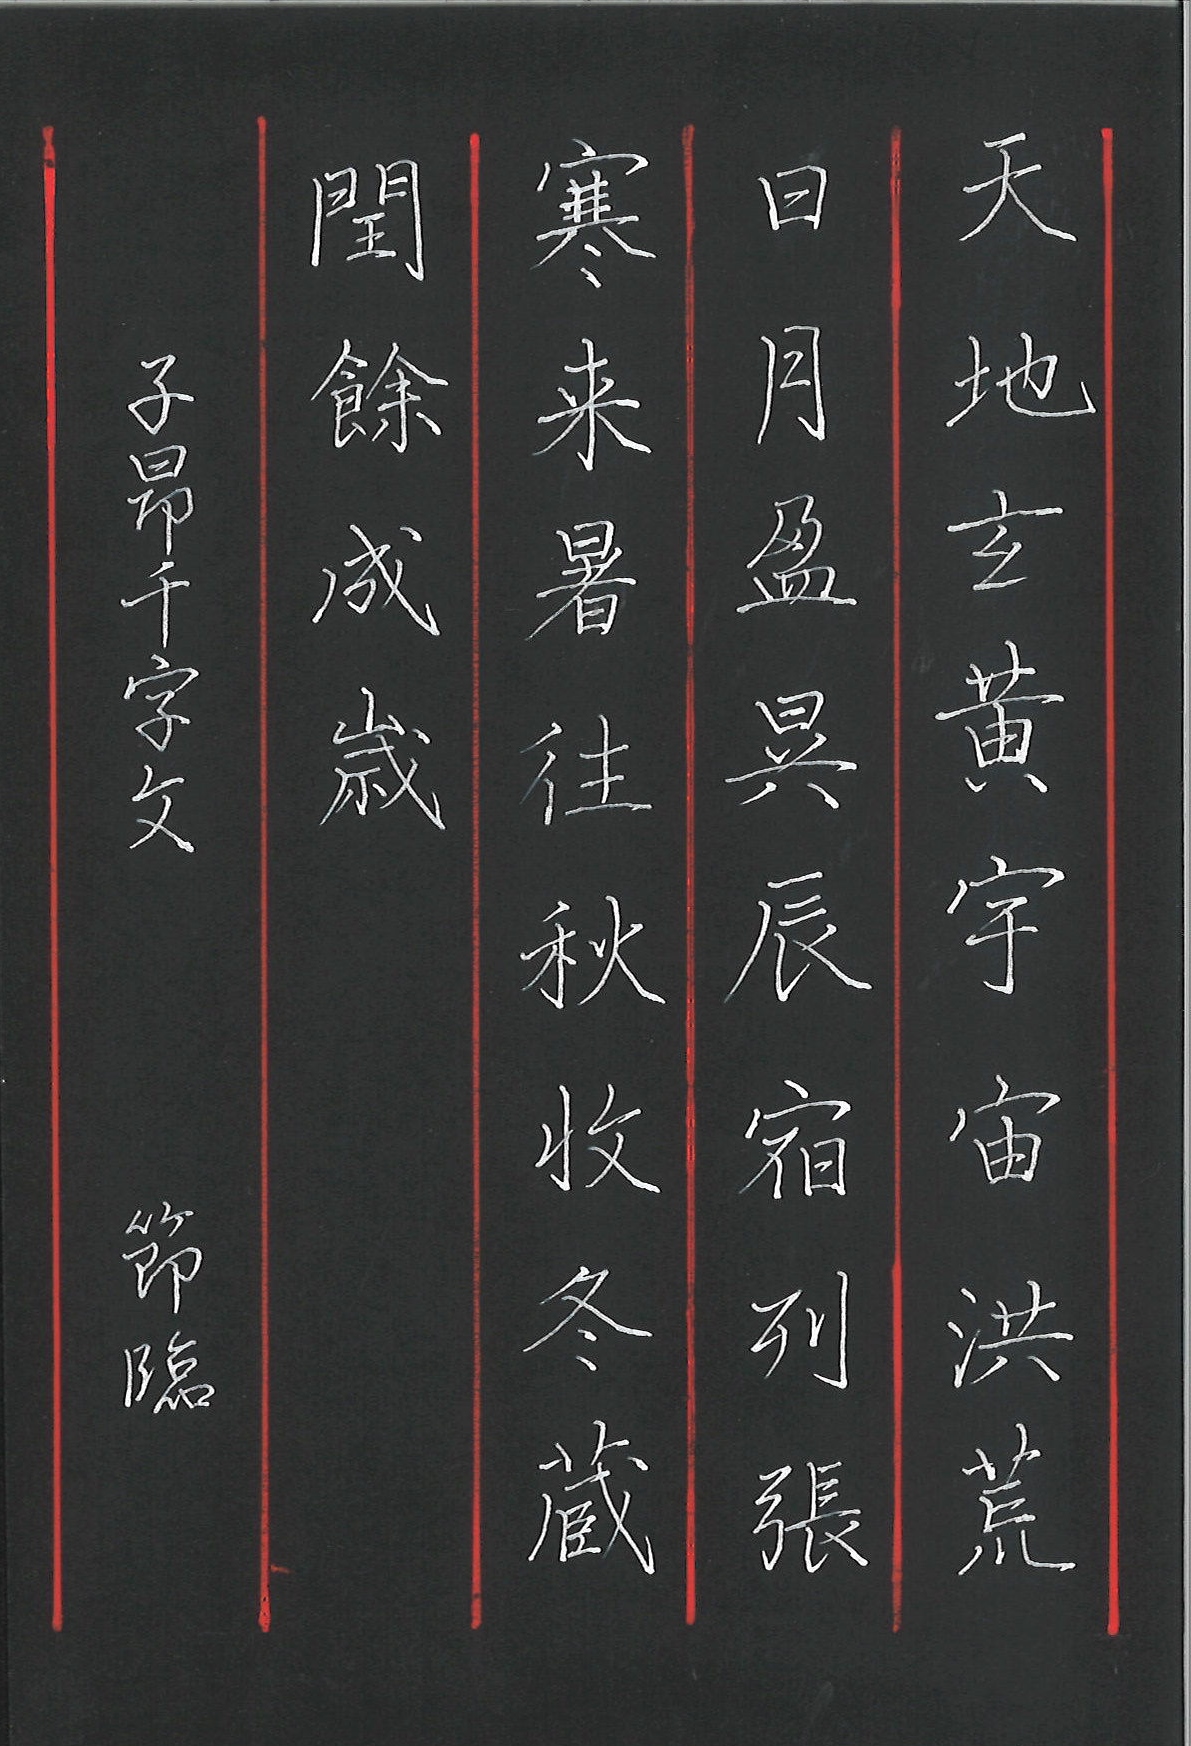 天地玄黄宇宙洪荒
日月盈昃辰宿列張
寒来暑往秋收冬蔵
閏餘成歳
子昂千字文 節臨